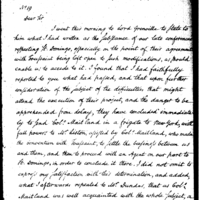 No 19
Dear Sir
I went this morning to Lord Grenville to state to
him what I had written as the substance of our late conference
respecting St Domingo, especially on the point of their agreement
with Toussaint being left open to such modifications, as should
enable us to accede to it. I found that I had faithfully
reported to you what had passed, and that upon further
consideration of the subject of the difficulties that might
attend the execution of their project, and the danger to be
apprehended from delay, they have concluded immediately
to send Col. Maitland in a frigate to New York with
full powers to Mr Liston, assisted by Col. Maitland, who made
the convention with Toussaint, to settle the business between us
and them, and then to proceed with an Agent on our part to
St Domingo, in order to conclude it there. I did not omit to
express my satisfaction with this determination, and added,
what I afterwards repeated to Mr Dundas, that as Col.
Maitland was well acquainted with the whole subject,